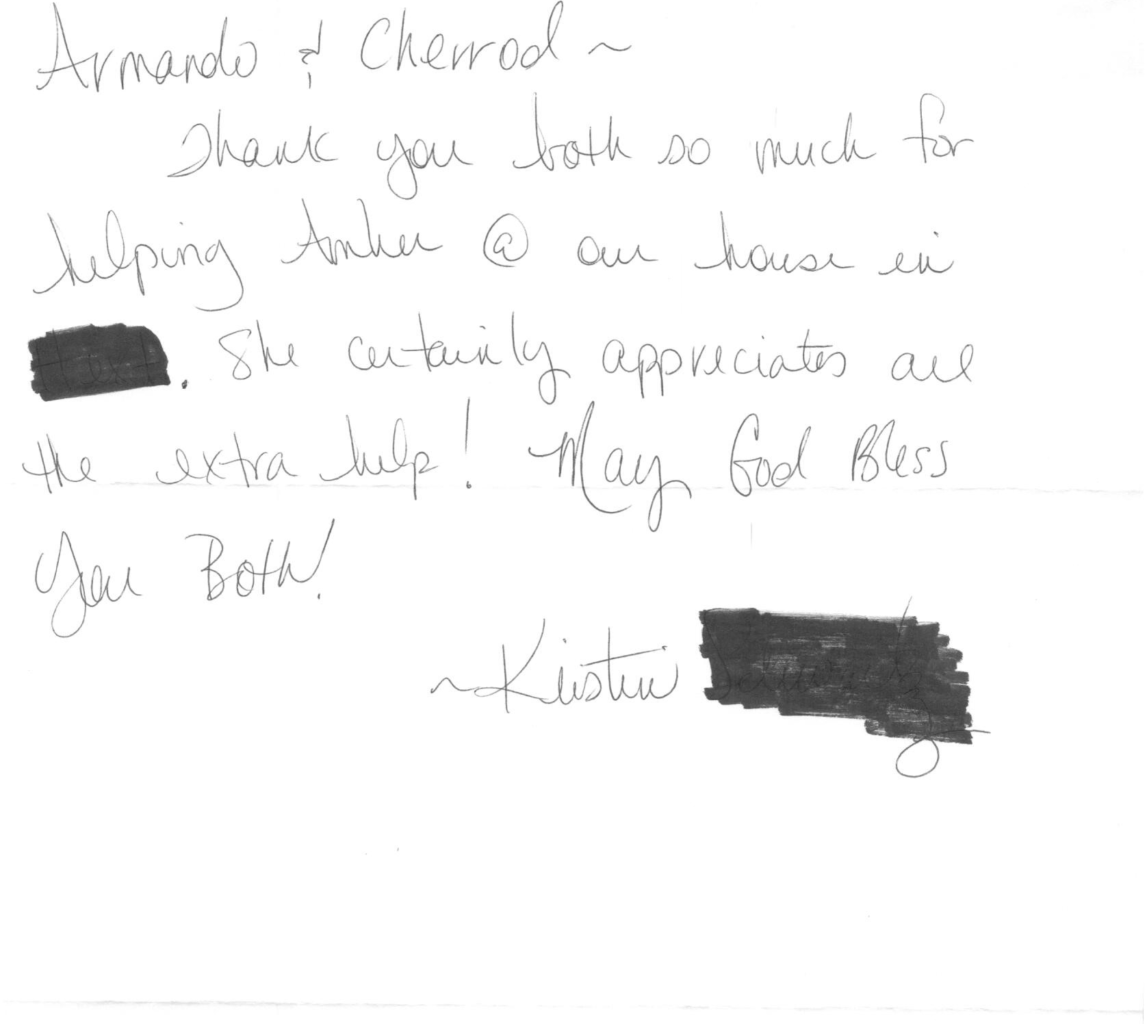 Armando & Cherrod ~
Thank you both so much for
helping Amber @ our house in
. She certainly appreciates all
the extra help! May God Bless
You Both!
~ Kirsten